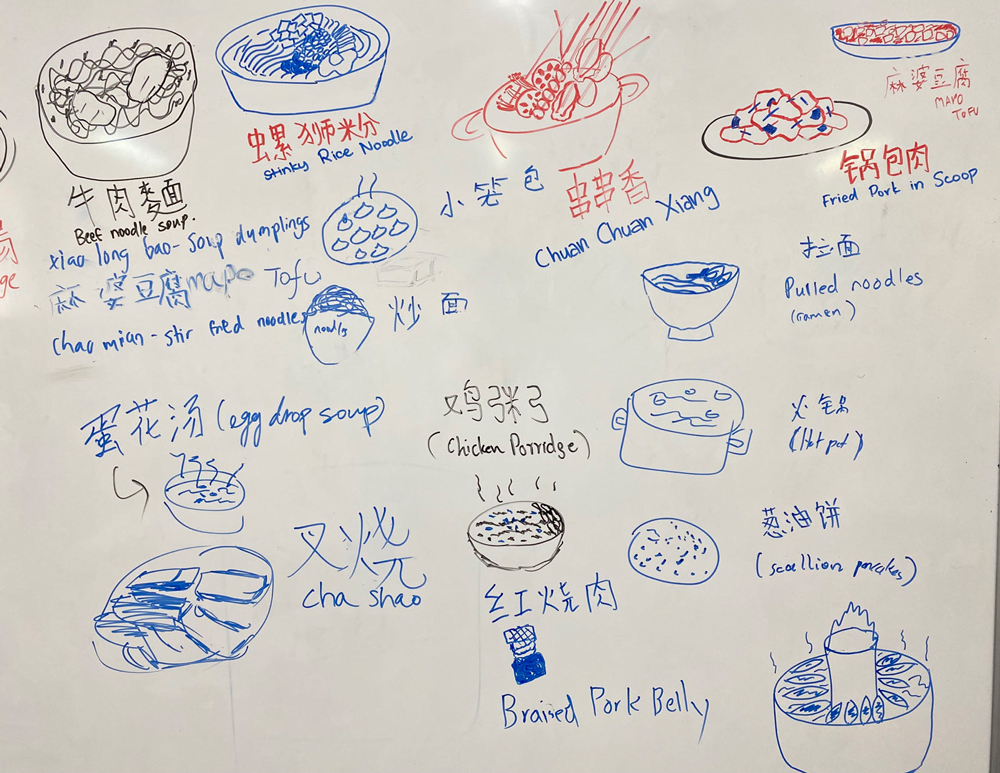 牛肉麵
Beef noodle soup.
螺蛳米分
Stinky Rice Noodle
串串香
Chuan Chuan Xiang
麻婆豆腐
MAPO
TOFU
锅包肉
Fried Pork in Scoop
xiao long bao - soup dumplings
小笼包
麻婆豆腐 mapo Tofu
chao mian - stir fried noodles
noodls
炒面
拉面
Pulled noodles
(ramen)
蛋花汤 (egg drop soup)
鸡粥
(Chicken Porridge)
火锅
(Hot pot)
叉烧
cha shao
葱油饼
(scallion pancakes)
红烧肉
Braised Pork Belly
汤
ge